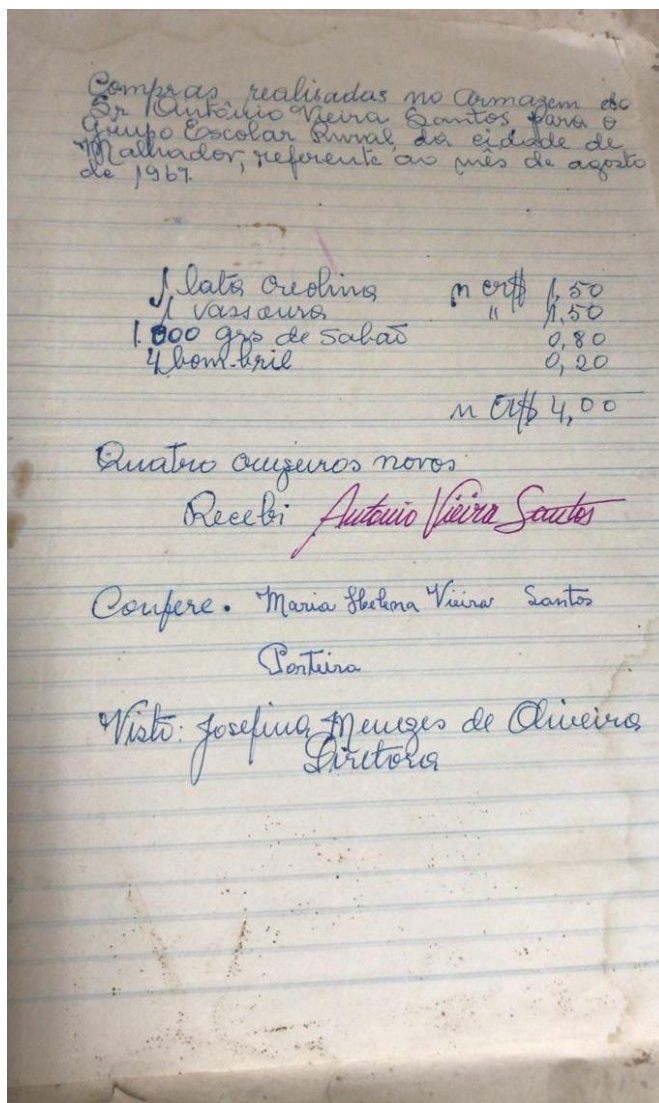 Compras realisadas no armazem do
Sr Antônio Vieira Santos para o
Grupo Escolar Rural, da cidade de
Malhador, referente ao mês de agosto
de 1967.
1 lata creolina n cr$ 1,50
1 vassoura " 1,50
1.000 grs de sabaõ 0,80
4 bom-bril 0,20
n cr$ 4,00
Quatro cruzeiros novos
Recebi Antonio Vieira Santos
Confere. Maria Helena Vieira Santos
Porteira
Visto: Josefina Menezes de Oliveira
Diretora